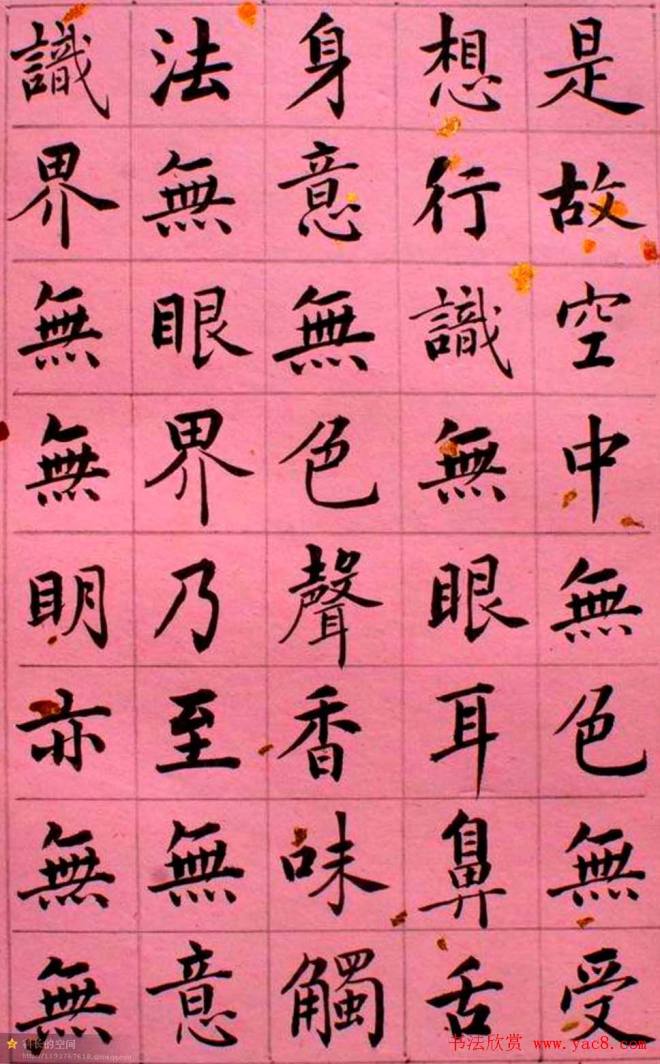 是故空中無色無受
想行識無眼耳鼻舌
身意無色聲香味觸
法無眼界乃至無意
識界無無明亦無無
科长的空间
书法欣赏 www.yac8.com